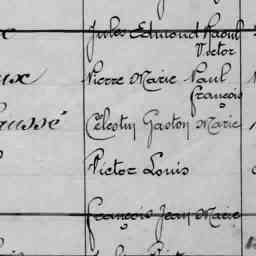 Jules Edmond Raoul
Victor
Pierre Marie Paul
François
Célestin Gaston Marie
Victor Louis
François Jean Marie